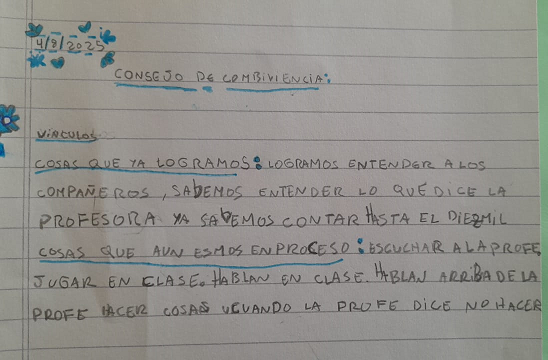 4/8/2025
CONSEJO DE COMBIVIENCIA:
VINCULOS
COSAS QUE YA LOGRAMOS: LOGRAMOS ENTENDER A LOS
COMPAÑEROS, SABEMOS ENTENDER LO QUE DICE LA
PROFESORA YA SABEMOS CONTAR HASTA EL DIEZMIL
COSAS QUE AUN ESMOS EN PROCESO: ESCUCHAR A LA PROFE,
JUGAR EN CLASE. HABLAN EN CLASE. HABLAN ARRIBA DE LA
PROFE HACER COSAS CUANDO LA PROFE DICE NO HACER